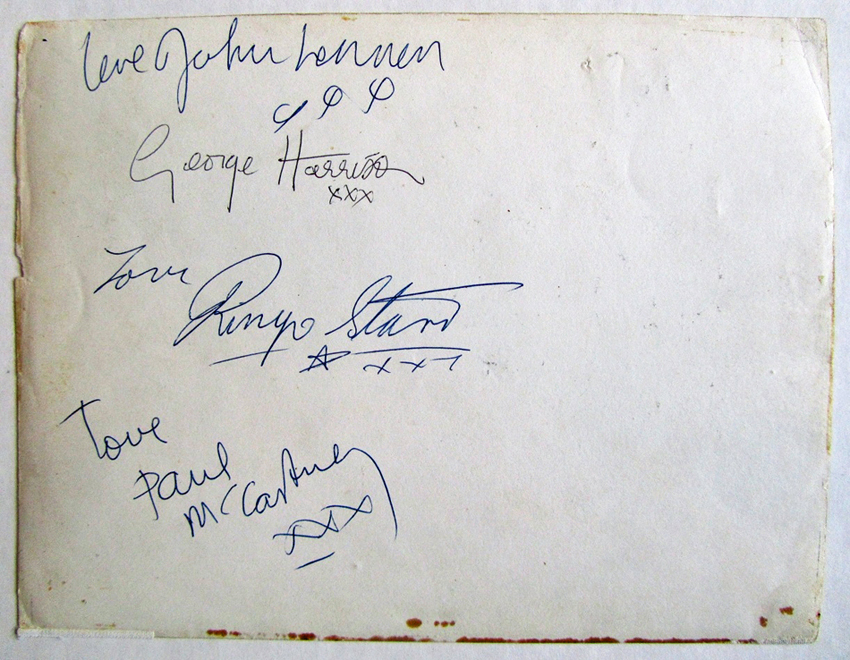 love John Lennon
xxx
George Harrison
xxx
Love
Ringo Starr
xxx
Love
Paul
McCartney
xxx